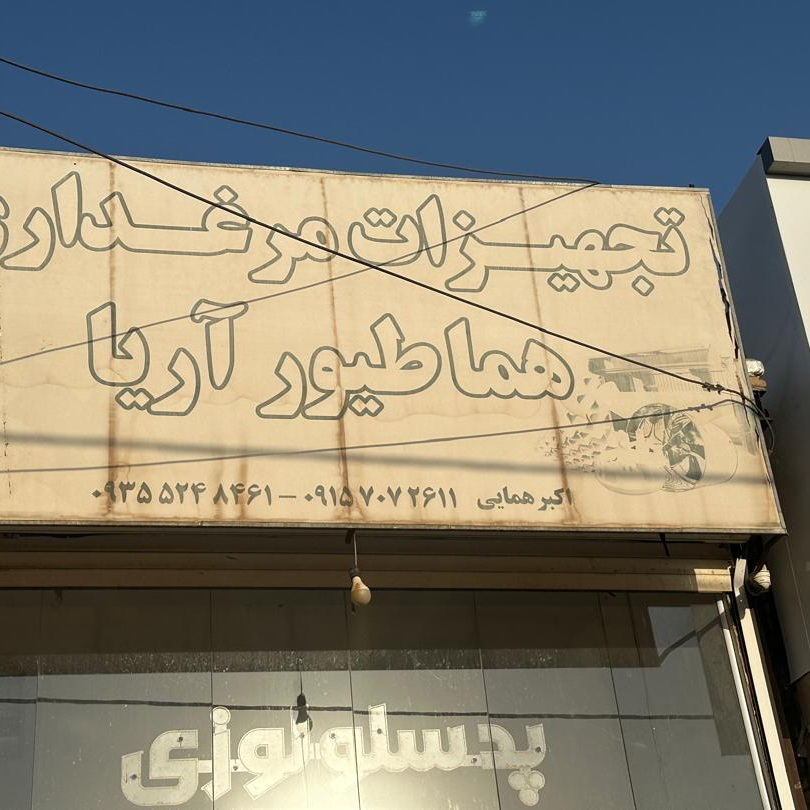 تجهیزات مرغداری
هما طیور آریا
اکبر همایی ۰۹۱۵ ۷۰۷ ۲۶۱۱ – ۰۹۳۵ ۵۲۴ ۸۴۶۱
پدسلولوزی